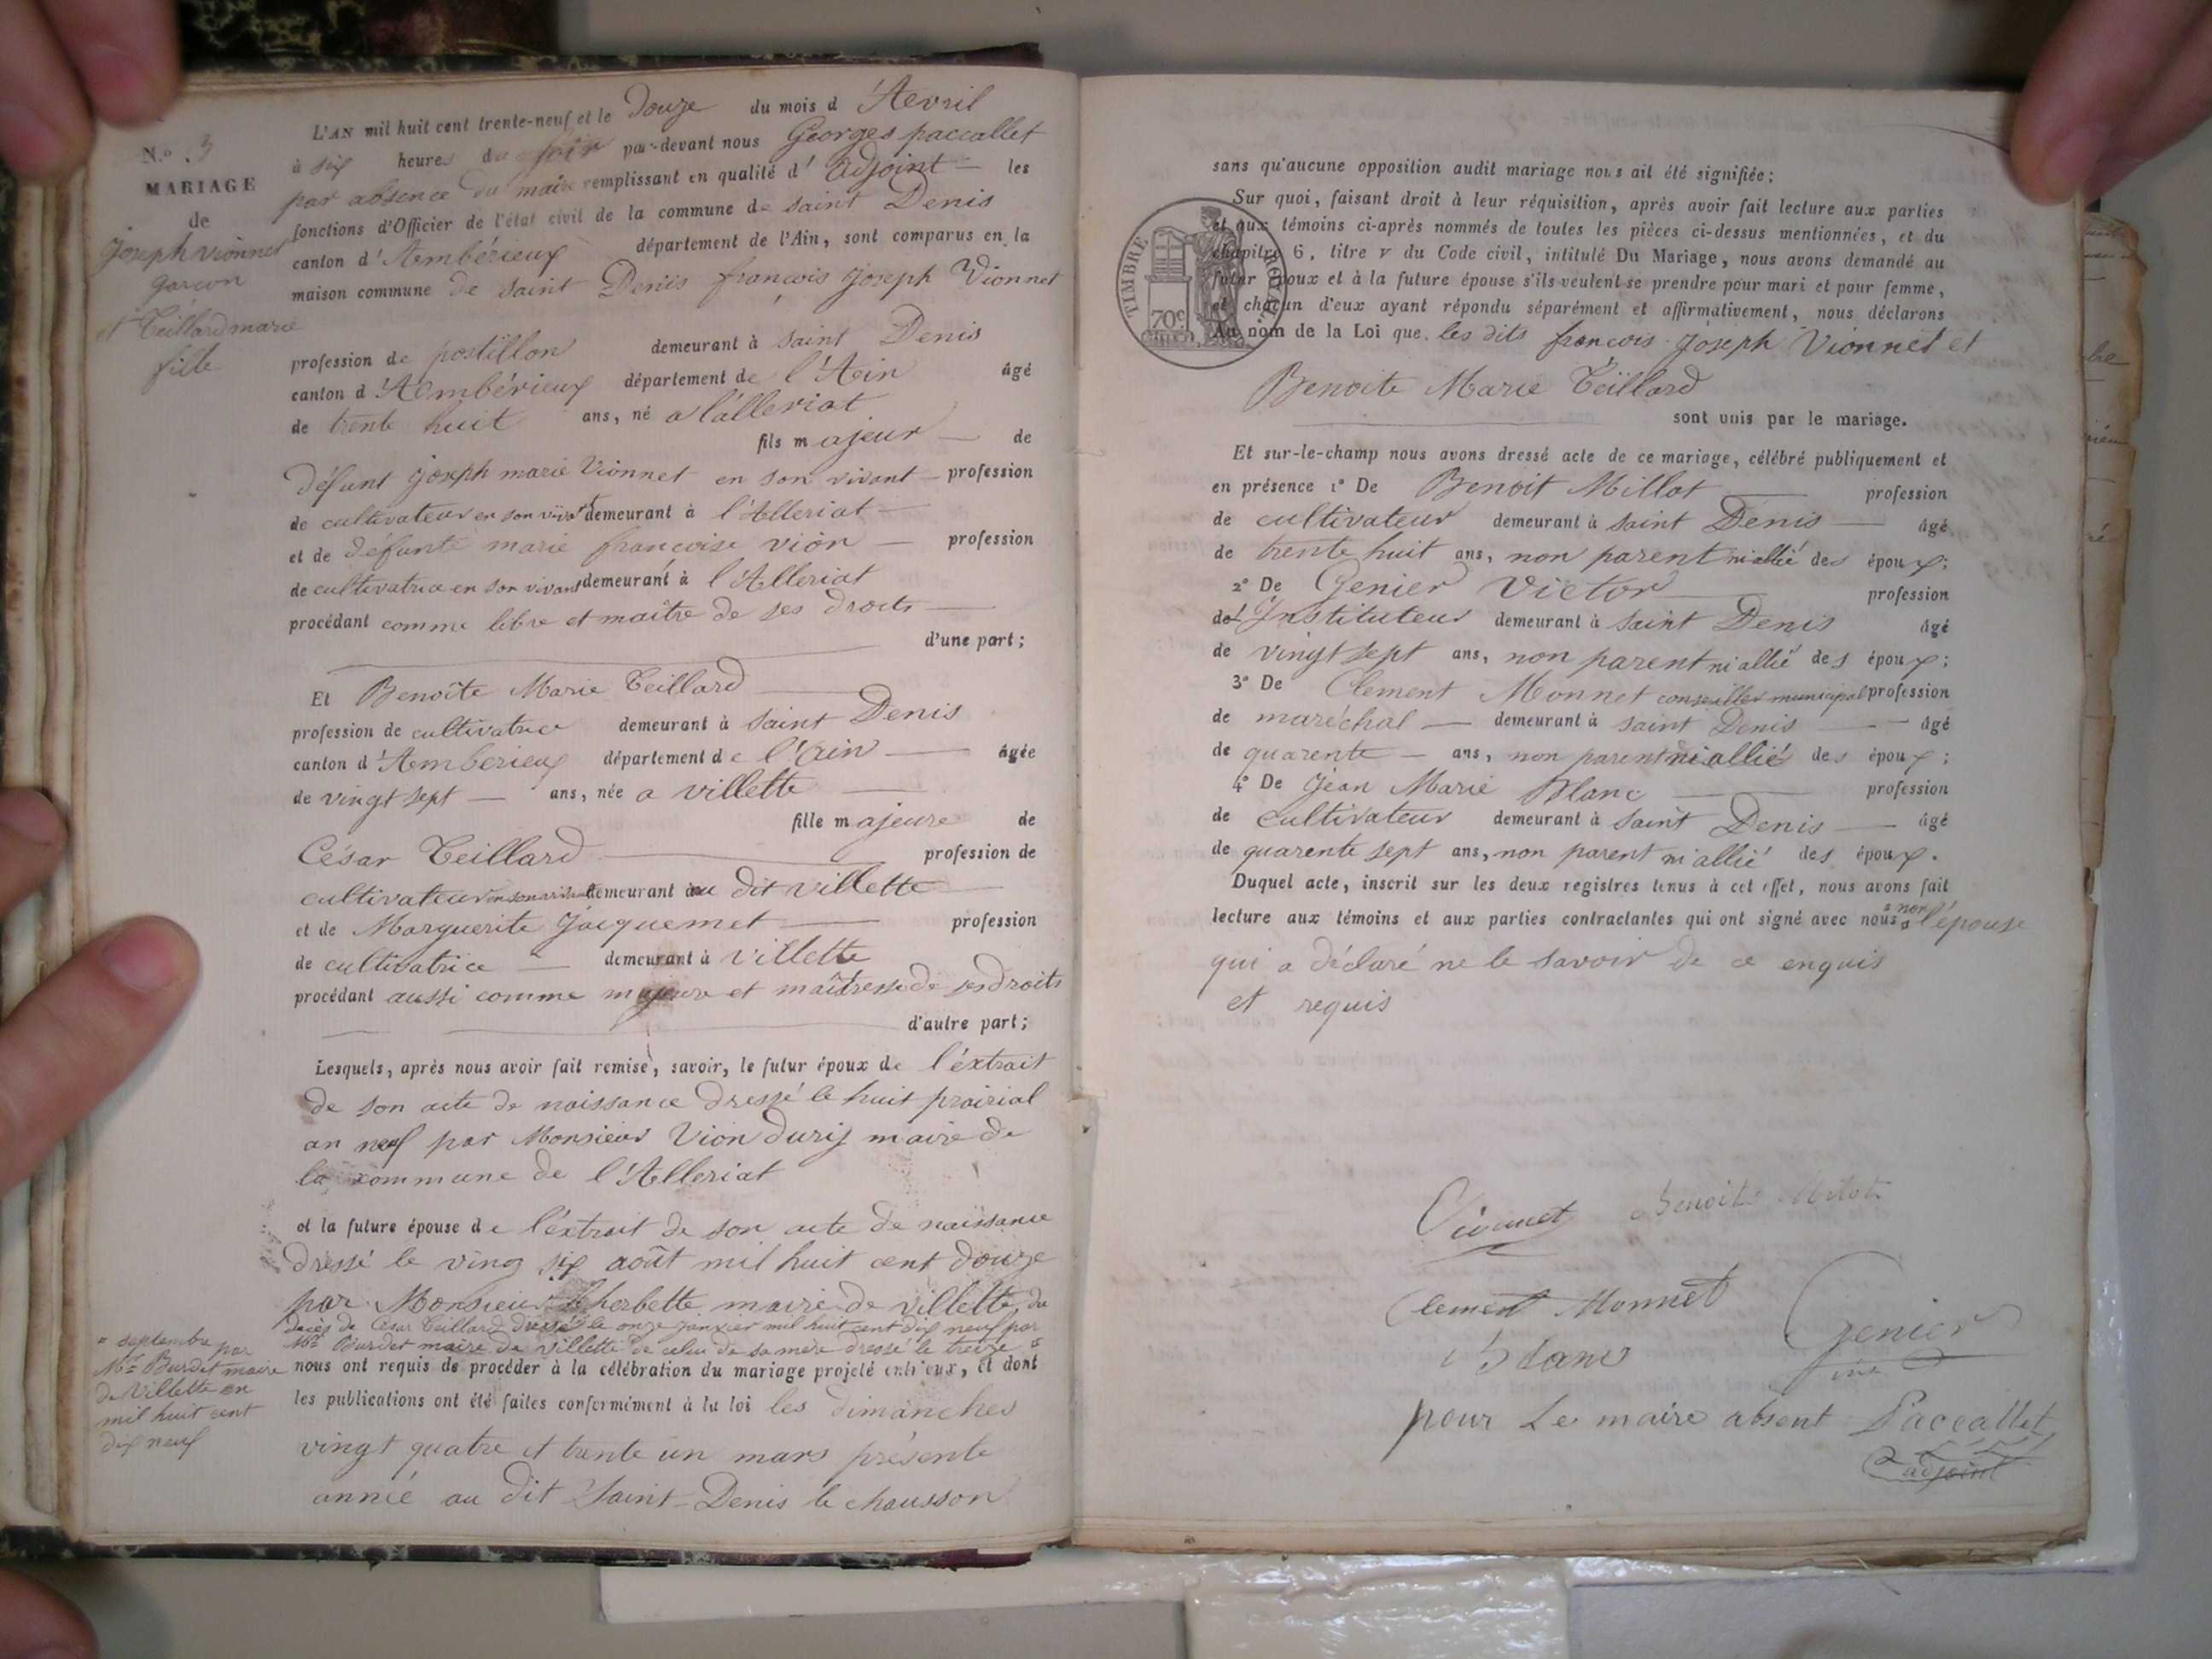 N.º 3
MARIAGE
de
Joseph Vionnet
garçon
et Teillard marie
fille
L'AN mil huit cent trente-neuf et le Douze du mois d'Avril
à six heures du soir par-devant nous Georges paccallet
par absence du maire remplissant en qualité d'adjoint les
fonctions d'Officier de l'état civil de la commune de saint Denis
canton d'Ambérieux département de l'Ain, sont comparus en la
maison commune de saint Denis françois joseph Vionnet
profession de postillon demeurant à saint Denis
canton d'Ambérieux département de l'Ain âgé
de trente huit ans, né a l'alleriat
fils majeur de
défunt joseph marie Vionnet en son vivant profession
de cultivateur en son vivant demeurant à l'Alleriat
et de défunte marie françoise vion profession
de cultivatrice en son vivant demeurant à l'Alleriat
procédant comme libre et maître de ses droits
d'une part;
Et Benoîte Marie Teillard
profession de cultivatrice demeurant à saint Denis
canton d'Ambérieux département de l'ain âgée
de vingt sept ans, née a villette
fille majeure de
César Teillard profession de
cultivateur en son vivant demeurant au dit villette
et de Marguerite Jacquemet profession
de cultivatrice demeurant à villette
procédant aussi comme majeure et maîtresse de ses droits
d'autre part;
Lesquels, après nous avoir fait remise, savoir, le futur époux de l'éxtrait
de son acte de naissance dressé le huit prairial
an neuf par Monsieur Vion Durif maire de
la commune de l'Alleriat
et la future épouse de l'éxtrait de son acte de naissance
dressé le ving six août mil huit cent douze
par Monsieur Lherbette maire de villette, du
décès de César Teillard dressé le onze janvier mil huit cent dix neuf par
Mr Burdet maire de villette de celui de sa mère dressé le treize
" septembre par
Mr Burdet maire
de Villette en
mil huit cent
dix neuf
nous ont requis de procéder à la célébration du mariage projeté entr'eux, et dont
les publications ont été faites conformément à la loi les dimanches
vingt quatre et trente un mars présente
année au dit Saint-Denis le chausson
sans qu'aucune opposition audit mariage nous ait été signifiée;
Sur quoi, faisant droit à leur réquisition, après avoir fait lecture aux parties
et aux témoins ci-après nommés de toutes les pièces ci-dessus mentionnées, et du
chapitre 6, titre V du Code civil, intitulé Du Mariage, nous avons demandé au
futur époux et à la future épouse s'ils veulent se prendre pour mari et pour femme,
et chacun d'eux ayant répondu séparément et affirmativement, nous déclarons
Au nom de la Loi que les dits françois joseph Vionnet et
TIMBRE ROYAL
70c
Benoite Marie Teillard
sont unis par le mariage.
Et sur-le-champ nous avons dressé acte de ce mariage, célébré publiquement et
en présence 1º De Benoit Millot profession
de cultivateur demeurant à saint Denis âgé
de trente huit ans, non parent ni allié des époux;
2º De Genier Victor profession
de l'Instituteur demeurant à saint Denis âgé
de vingt sept ans, non parent ni allié des époux;
3º De Clement Monnet conseiller municipal profession
de maréchal demeurant à saint Denis âgé
de quarente ans, non parent ni allié des époux;
4º De Jean Marie Blanc profession
de cultivateur demeurant à saint Denis âgé
de quarente sept ans, non parent ni allié des époux.
Duquel acte, inscrit sur les deux registres tenus à cet effet, nous avons fait
lecture aux témoins et aux parties contractantes qui ont signé avec nous non l'épouse
qui a déclaré ne le savoir de ce enquis
et requis
Vionnet Benoit Milot
Clement Monnet Genier
Blanc
pour Le maire absent Paccallet
adjoint